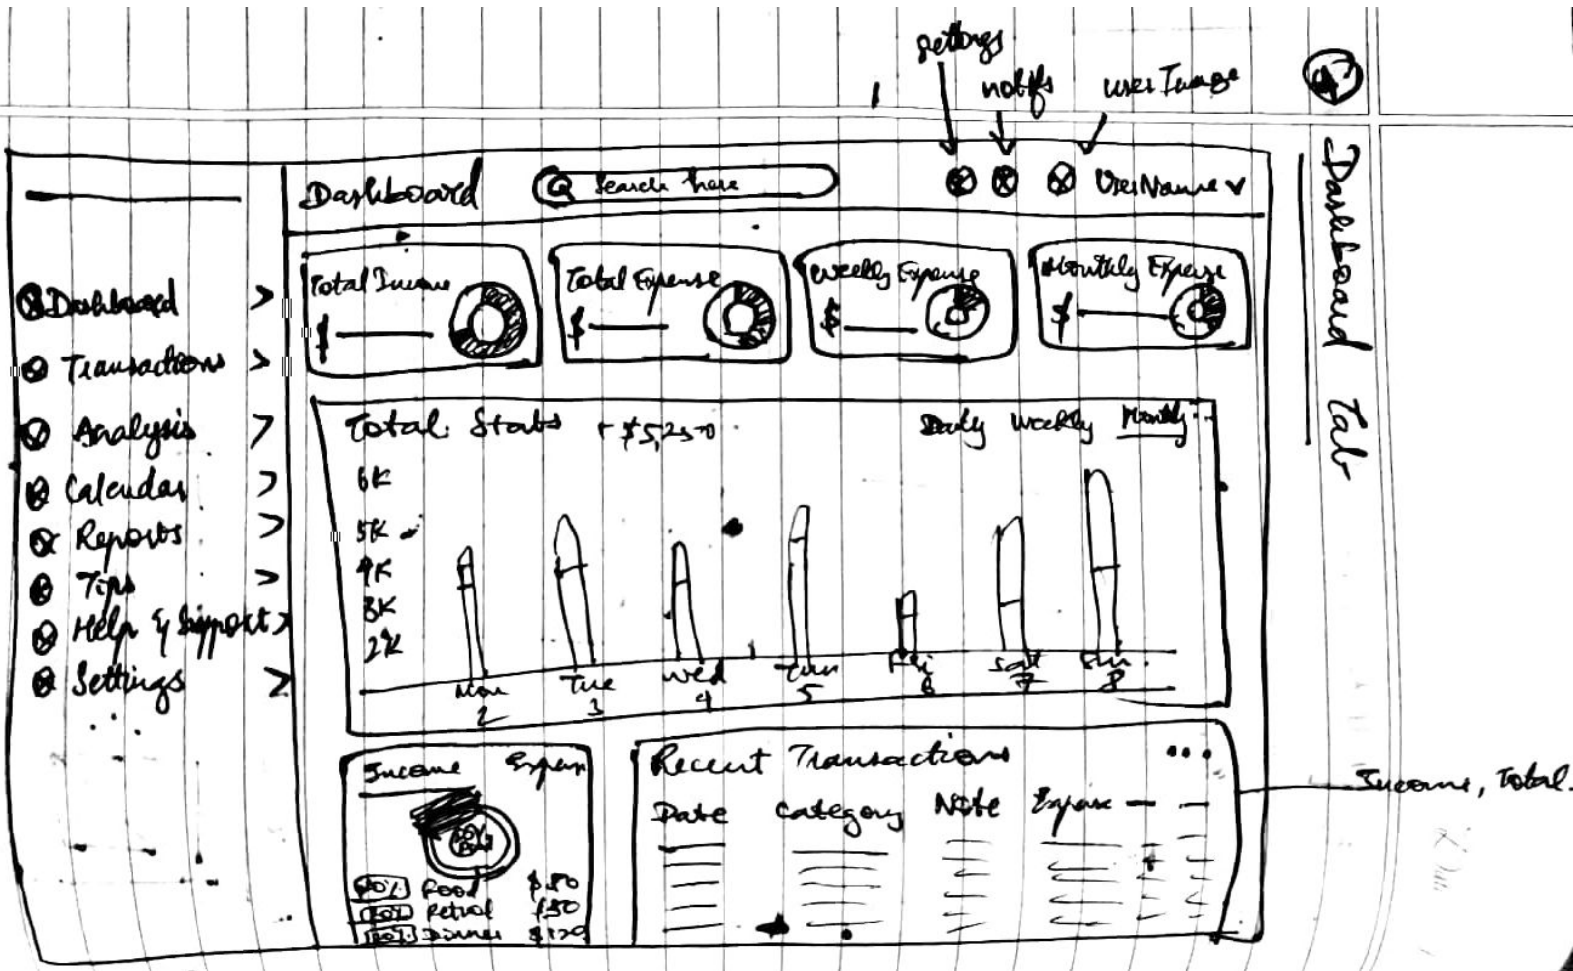 settings
notifs
user Image
Dashboard Tab
Dashboard
Search here
UserName
Dashboard >
Transactions >
Analysis >
Calendar >
Reports >
Tips >
Help & Support >
Settings >
Total Income
$
Total Expense
$
Weekly Expense
$
Monthly Expense
$
Total Stats + $5,250
Daily Weekly Monthly
6K
5K
4K
3K
2K
Mon Tue Wed Fri Sat Sun
2 3 4 5 6 7 8
Income Expen
Food $80
Petrol $50
Dinner
Recent Transactions ...
Date Category Note Expense
Income, Total.